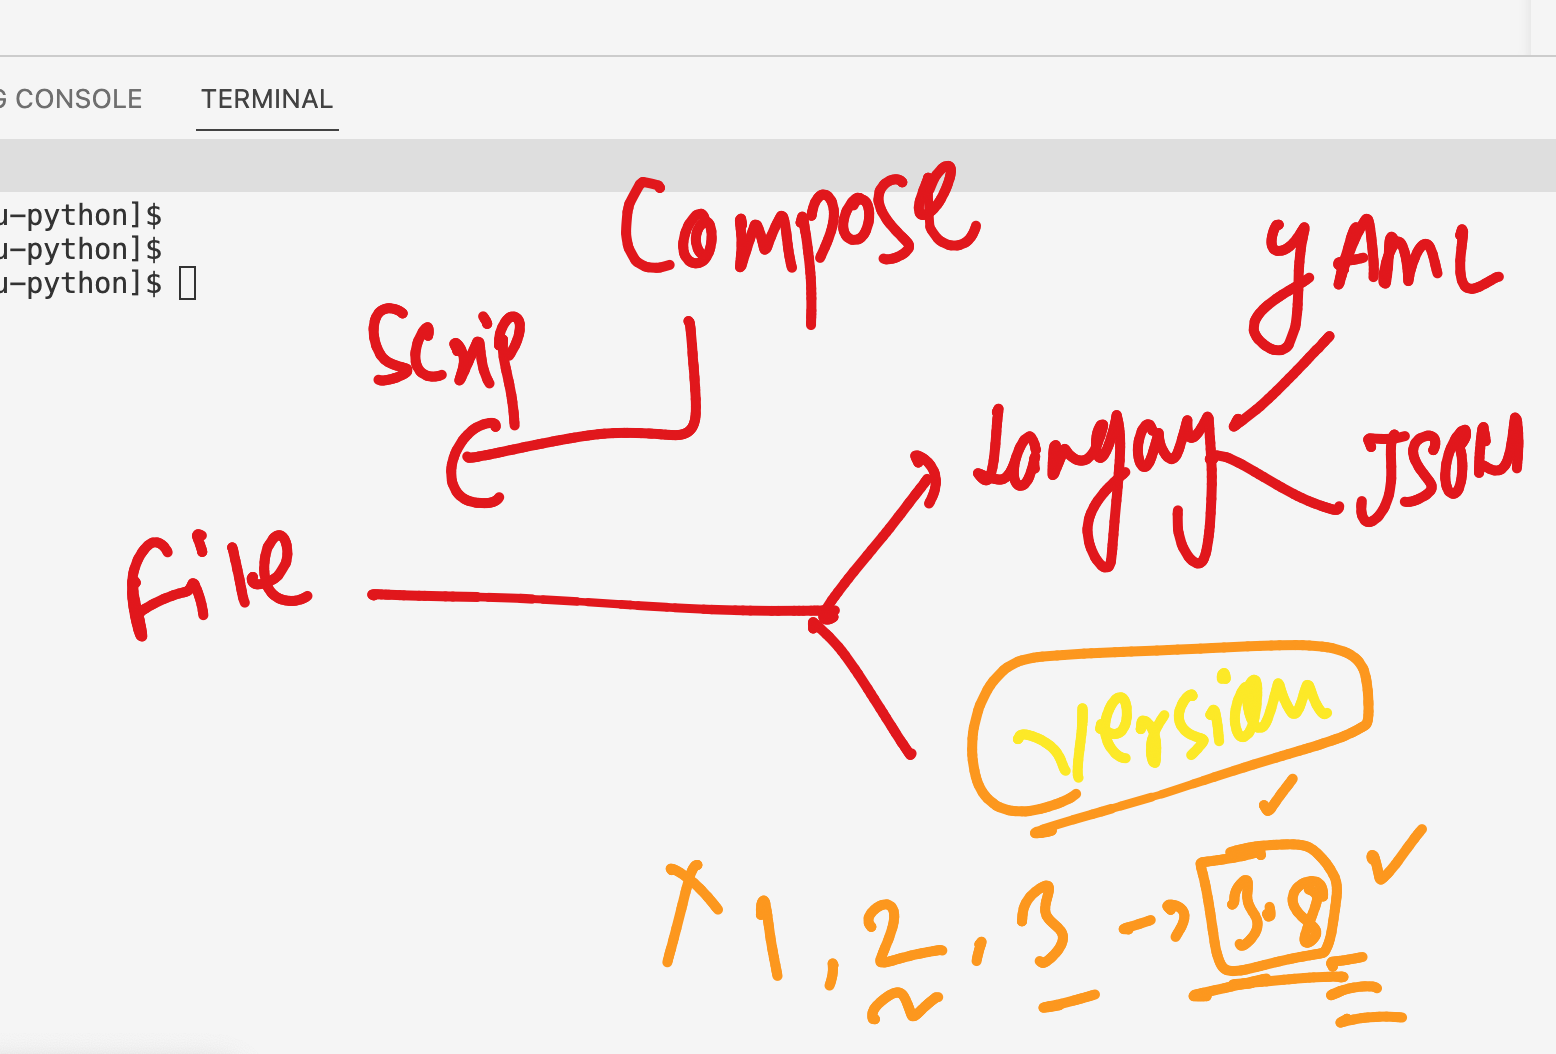 G CONSOLE TERMINAL
u-python]$
u-python]$
u-python]$
Compose
YAML
Scrip
Langay
JSON
File
version
X 1, 2, 3 -> 3.8